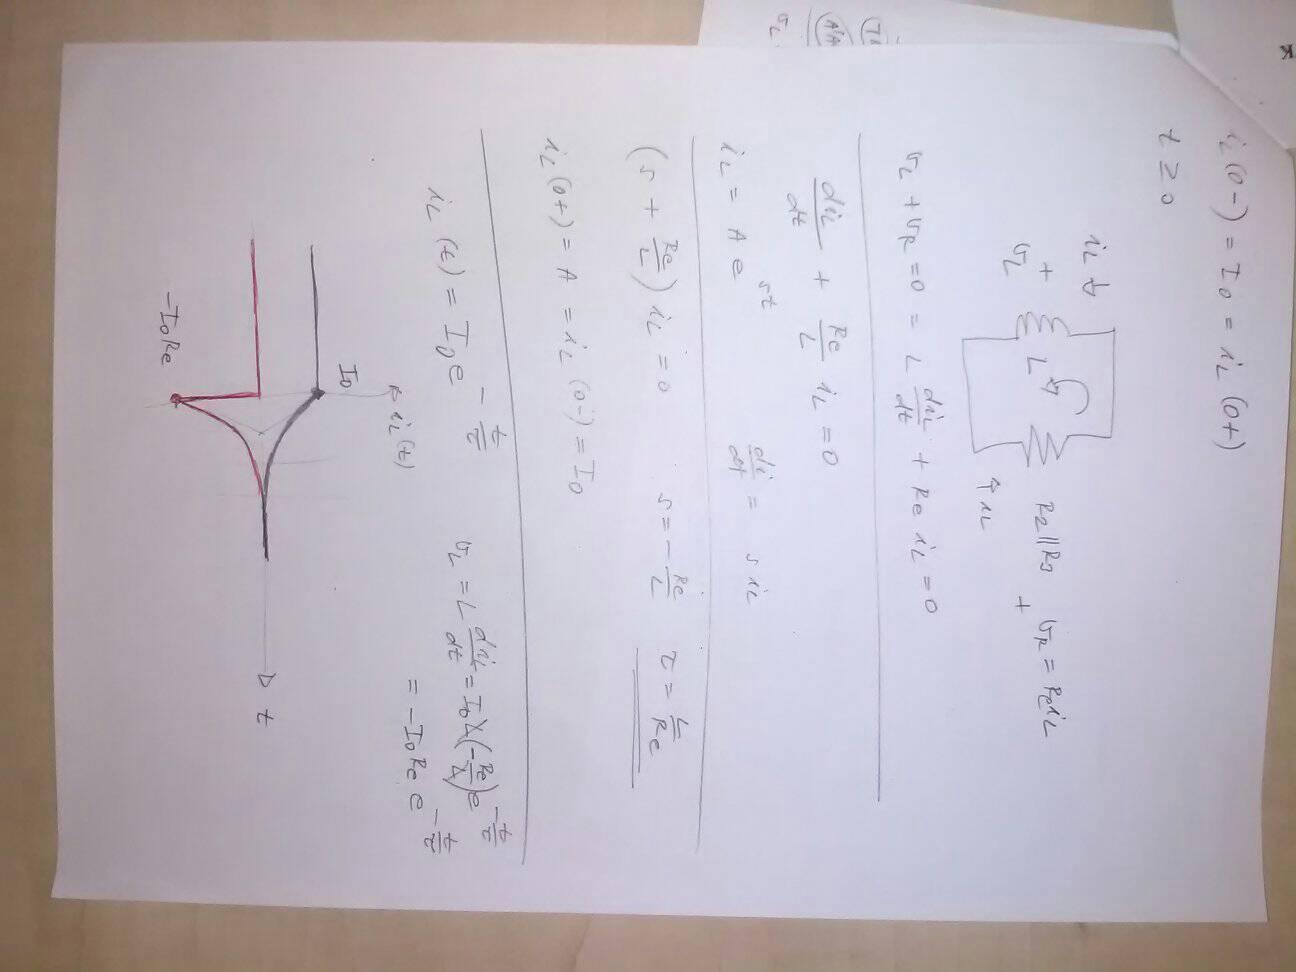 i_L(0-) = I_0 = i_L(0+)
t ≥ 0
i_L
+
v_L
L
R2||R3
v_R = R_e i_L
+
i_L
v_L + v_R = 0 = L di_L/dt + Re i_L = 0
di_L/dt + Re/L i_L = 0
i_L = A e^st
di/dt = s i_L
(s + Re/L) i_L = 0
s = -Re/L
τ = L/Re
i_L(0+) = A = i_L(0-) = I_0
i_L(t) = I_0 e^-t/τ
v_L = L di_L/dt = I_0 L (-Re/L) e^-t/τ
= -I_0 Re e^-t/τ
i_L(t)
I_0
t
-I_0 Re